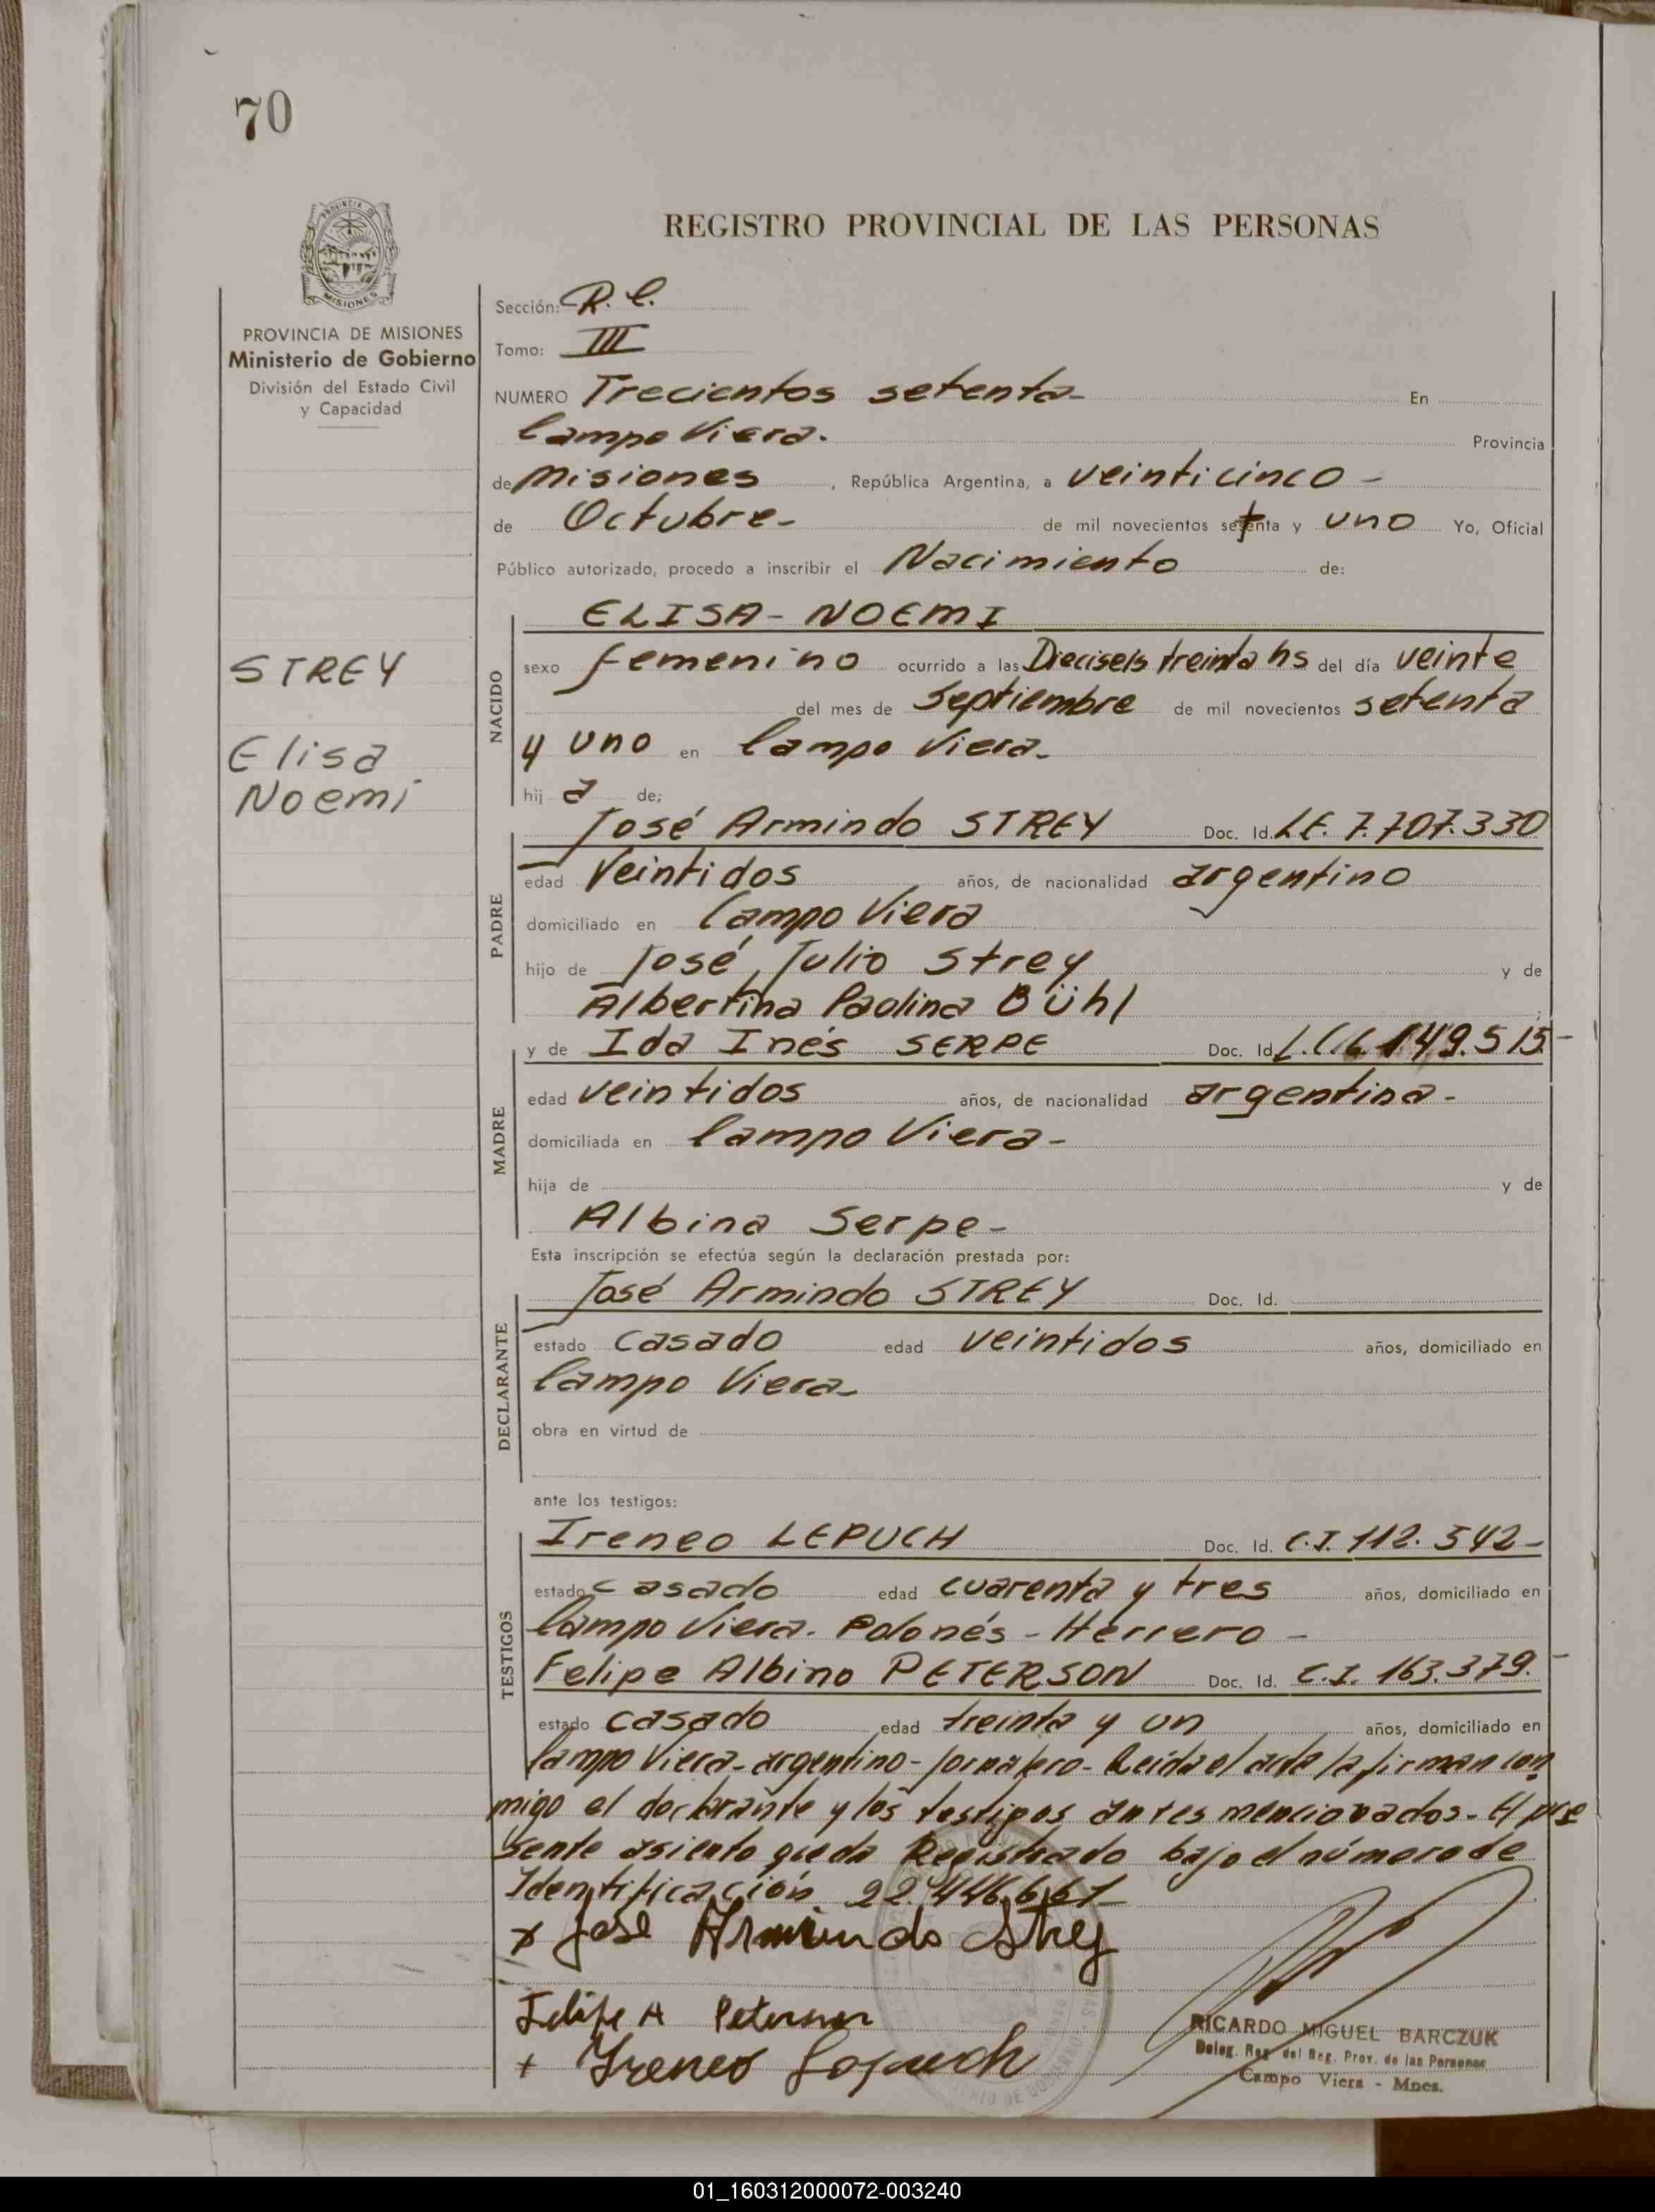 70
REGISTRO PROVINCIAL DE LAS PERSONAS
PROVINCIA DE
MISIONES
PROVINCIA DE MISIONES
Ministerio de Gobierno
División del Estado Civil
y Capacidad
STREY
Elisa
Noemi
Sección: R. C.
Tomo: III
NUMERO Trecientos setenta- En
Campo Viera.
Provincia
de Misiones, República Argentina, a veinticinco -
de Octubre- de mil novecientos setenta y uno Yo, Oficial
Público autorizado, procedo a inscribir el Nacimiento de:
NACIDO
ELISA - NOEMI
sexo femenino ocurrido a las Dieciseis treinta hs del día veinte
del mes de Septiembre de mil novecientos setenta
y uno en Campo Viera-
hij a de;
PADRE
José Armindo STREY Doc. Id. L.E. 7.707.330
edad Veintidos años, de nacionalidad argentino
domiciliado en Campo Viera
hijo de José, Julio Strey y de
Albertina Paolina Bühl
MADRE
y de Ida Inés SERPE Doc. Id. L.C. 6.149.515-
edad veintidos años, de nacionalidad argentina-
domiciliada en Campo Viera-
hija de y de
Albina Serpe-
Esta inscripción se efectúa según la declaración prestada por:
DECLARANTE
José Armindo STREY Doc. Id.
estado casado edad veintidos años, domiciliado en
Campo Viera-
obra en virtud de
ante los testigos:
TESTIGOS
Ireneo LEPUCH Doc. Id. C.I. 112.542-
estado casado edad cuarenta y tres años, domiciliado en
Campo Viera. Polonés - Herrero -
Felipe Albino PETERSON Doc. Id. C.I. 163.379.-
estado casado edad treinta y un años, domiciliado en
Campo Viera- argentino- Jornalero- Leída el acta la firman con
migo el declarante y los testigos antes mencionados- El pre
sente asiento queda Registrado bajo el número de
Identificación 22.446.661-
x José Armindo Strey
Felipe A Peterson
+ Ireneo
RICARDO MIGUEL BARCZUK
Deleg. Reg. del Reg. Prov. de las Personas
Campo Viera - Mnes.
01_160312000072-003240